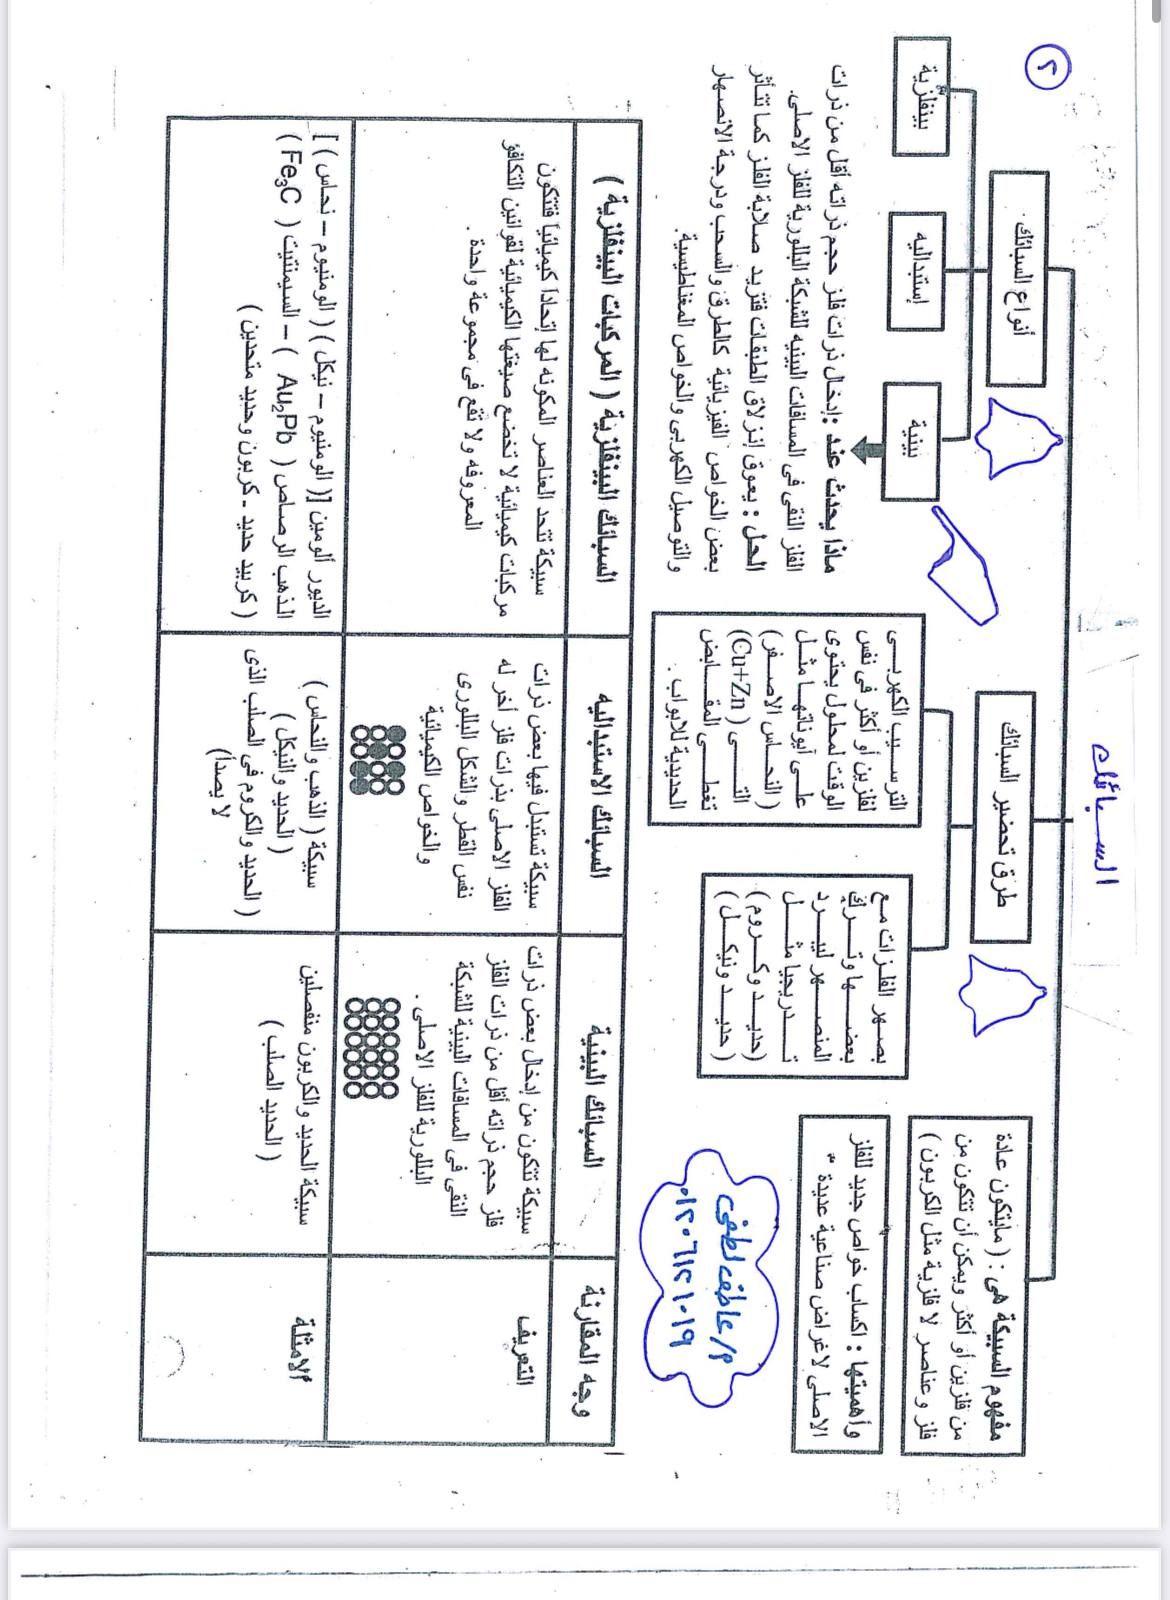 ٢
السبائك
مفهوم السبيكة هى : ( مايتكون عادة
من فلزين أو أكثر ويمكن أن تتكون من
فلز وعناصر لا فلزية مثل الكربون )
وأهميتها : اكساب خواص جديد للفلز
الاصلى لاغراض صناعية عديدة "
طرق تحضير السبائك
بصهر الفلزات مع
بعضها وترك
المنصهر ليبرد
تدريجيا مثل
( حديد وكروم )
( حديد ونيكل )
الترسيب الكهربى
لفلزين أو أكثر فى نفس
الوقت لمحلول يحتوى
على أيوناتها مثل
( النحاس الاصفر )
( Cu+Zn ) التى
تغطى المقابض
الحديدية للابواب .
أنواع السبائك
بينية
إستبداليه
بينفلزية
ماذا يحدث عند :إدخال ذرات فلز حجم ذراته أقل من ذرات
الفلز النقى فى المسافات البينيه للشبكة البللورية للفلز الاصلى.
الحل : يعوق إنزلاق الطبقات فتزيد صلابة الفلز كما تتأثر
بعض الخواص الفيزيائية كالطرق والسحب ودرجة الانصهار
والتوصيل الكهربى والخواص المغناطيسية.
م/ عاطف لطفى
٠١٢٠٦١٢١٠١٩
وجه المقارنة
السبائك البينية
السبائك الاستبداليه
السبائك البينفلزية ( المركبات البينفلزية )
التعريف
سبيكة تتكون من إدخال بعض ذرات
فلز حجم ذراته أقل من ذرات الفلز
النقى فى المسافات البينية للشبكة
البللورية للفلز الاصلى .
سبيكة تستبدل فيها بعض ذرات
الفلز الاصلى بذرات فلز أخر له
نفس القطر والشكل البللورى
والخواص الكيميائية
سبيكة تتحد العناصر المكونه لها إتحادا كيميائيا فتتكون
مركبات كيميائية لا تخضع صيغتها الكيميائية لقوانين التكافؤ
المعروفه ولا تقع فى مجموعة واحدة .
الامثلة
سبيكة الحديد والكربون منفصلين
( الحديد الصلب )
سبيكة ( الذهب والنحاس )
( الحديد والنيكل )
( الحديد والكروم فى الصلب الذى
لا يصدأ)
الديور ألومين [( الومنيوم – نيكل ) ( الومنيوم – نحاس ) ]
الذهب الرصاص ( Au2Pb ) – السيمنتيت ( Fe3C )
( كربيد حديد - كربون وحديد متحدين )